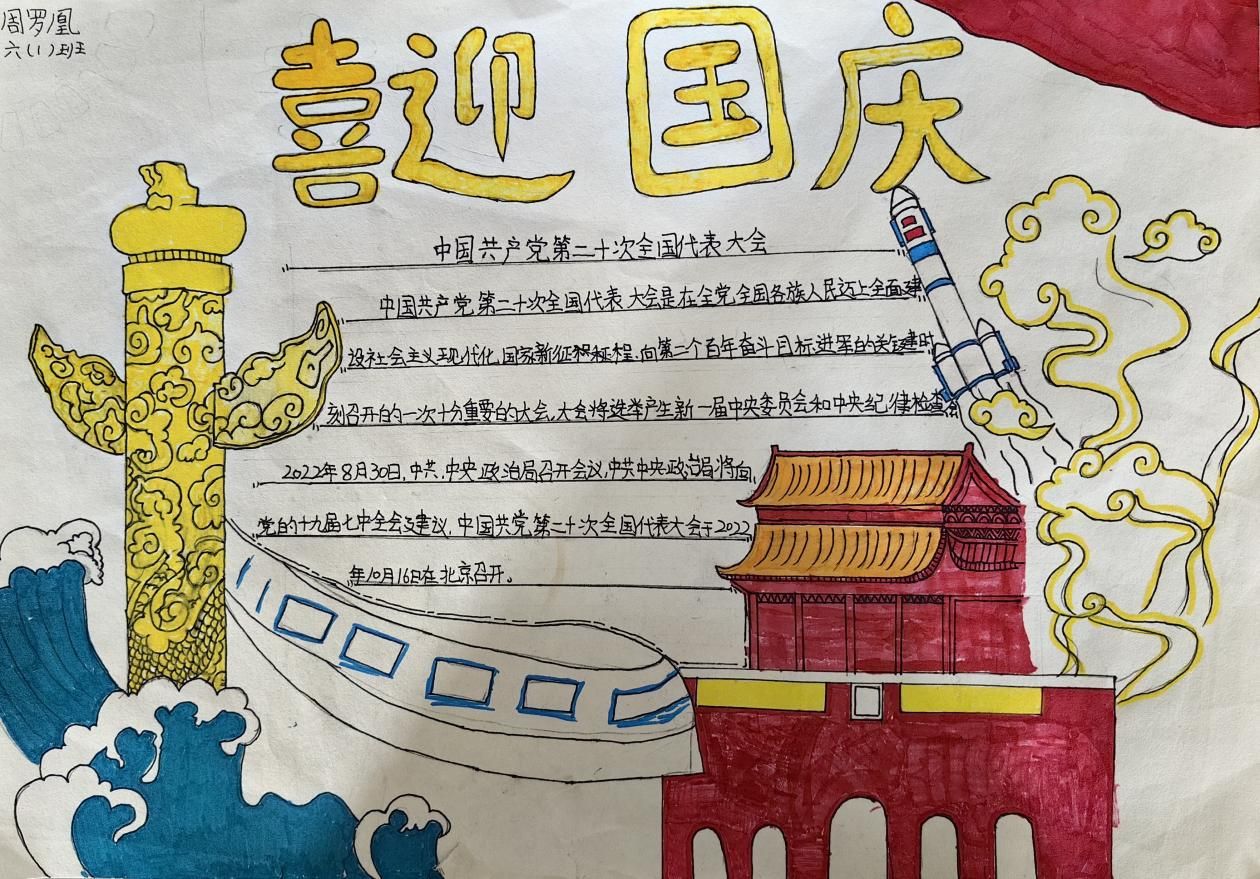 周罗凰
六(1)班
喜迎国庆
中国共产党第二十次全国代表大会
中国共产党第二十次全国代表大会是在全党全国各族人民迈上全面建
设社会主义现代化国家新征程,向第二个百年奋斗目标进军的关键时
刻召开的一次十分重要的大会,大会将选举产生新一届中央委员会和中央纪律检查
2022年8月30日,中共,中央政治局召开会议,中共中央政治局将向
党的十九届七中全会建议,中国共党第二十次全国代表大会于2022
年10月16日在北京召开。